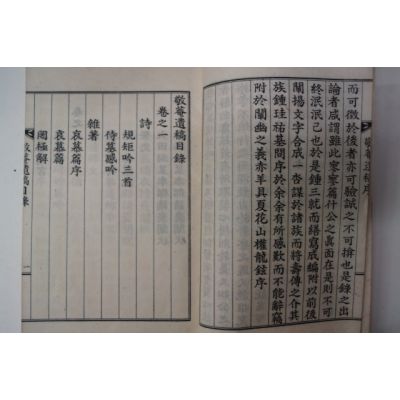 而可徵於後者亦可驗誠之不可揜也是錄之出
論者咸謂雖此零零篇什公之眞面在是則不可
終泯泯已也於是鍾三就而繕寫成編附以前後
闡揚文字合成一沓謀於諸族而將壽傳之介其
族鍾珪祜基問序於余余有所感歎而不能辭竊
附於闡幽之義亦羊具夏花山權龍鉉序
敬菴遺稿序
敬菴遺稿目錄
卷之一
詩
規矩吟三首
侍墓感吟
雜著
哀慕篇序
哀慕篇
罔極解
敬菴遺稿目錄
一